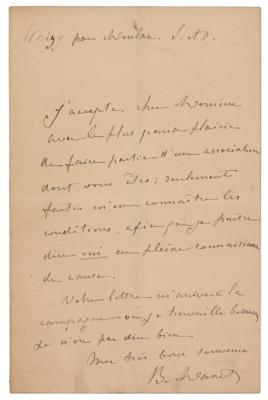 par Meulan. S. et O.
J'accepte, cher Monsieur
avec le plus grand plaisir
de faire partie d'une association
dont vous êtes; seulement
faites m'en connaître les
conditions, afin que je puisse
dire oui en pleine connaissance
de cause.
Votre lettre m'arrive à la
campagne où je travaille beaucoup
Je n'ose pas dire bien
Mes très bons souvenirs
B. M